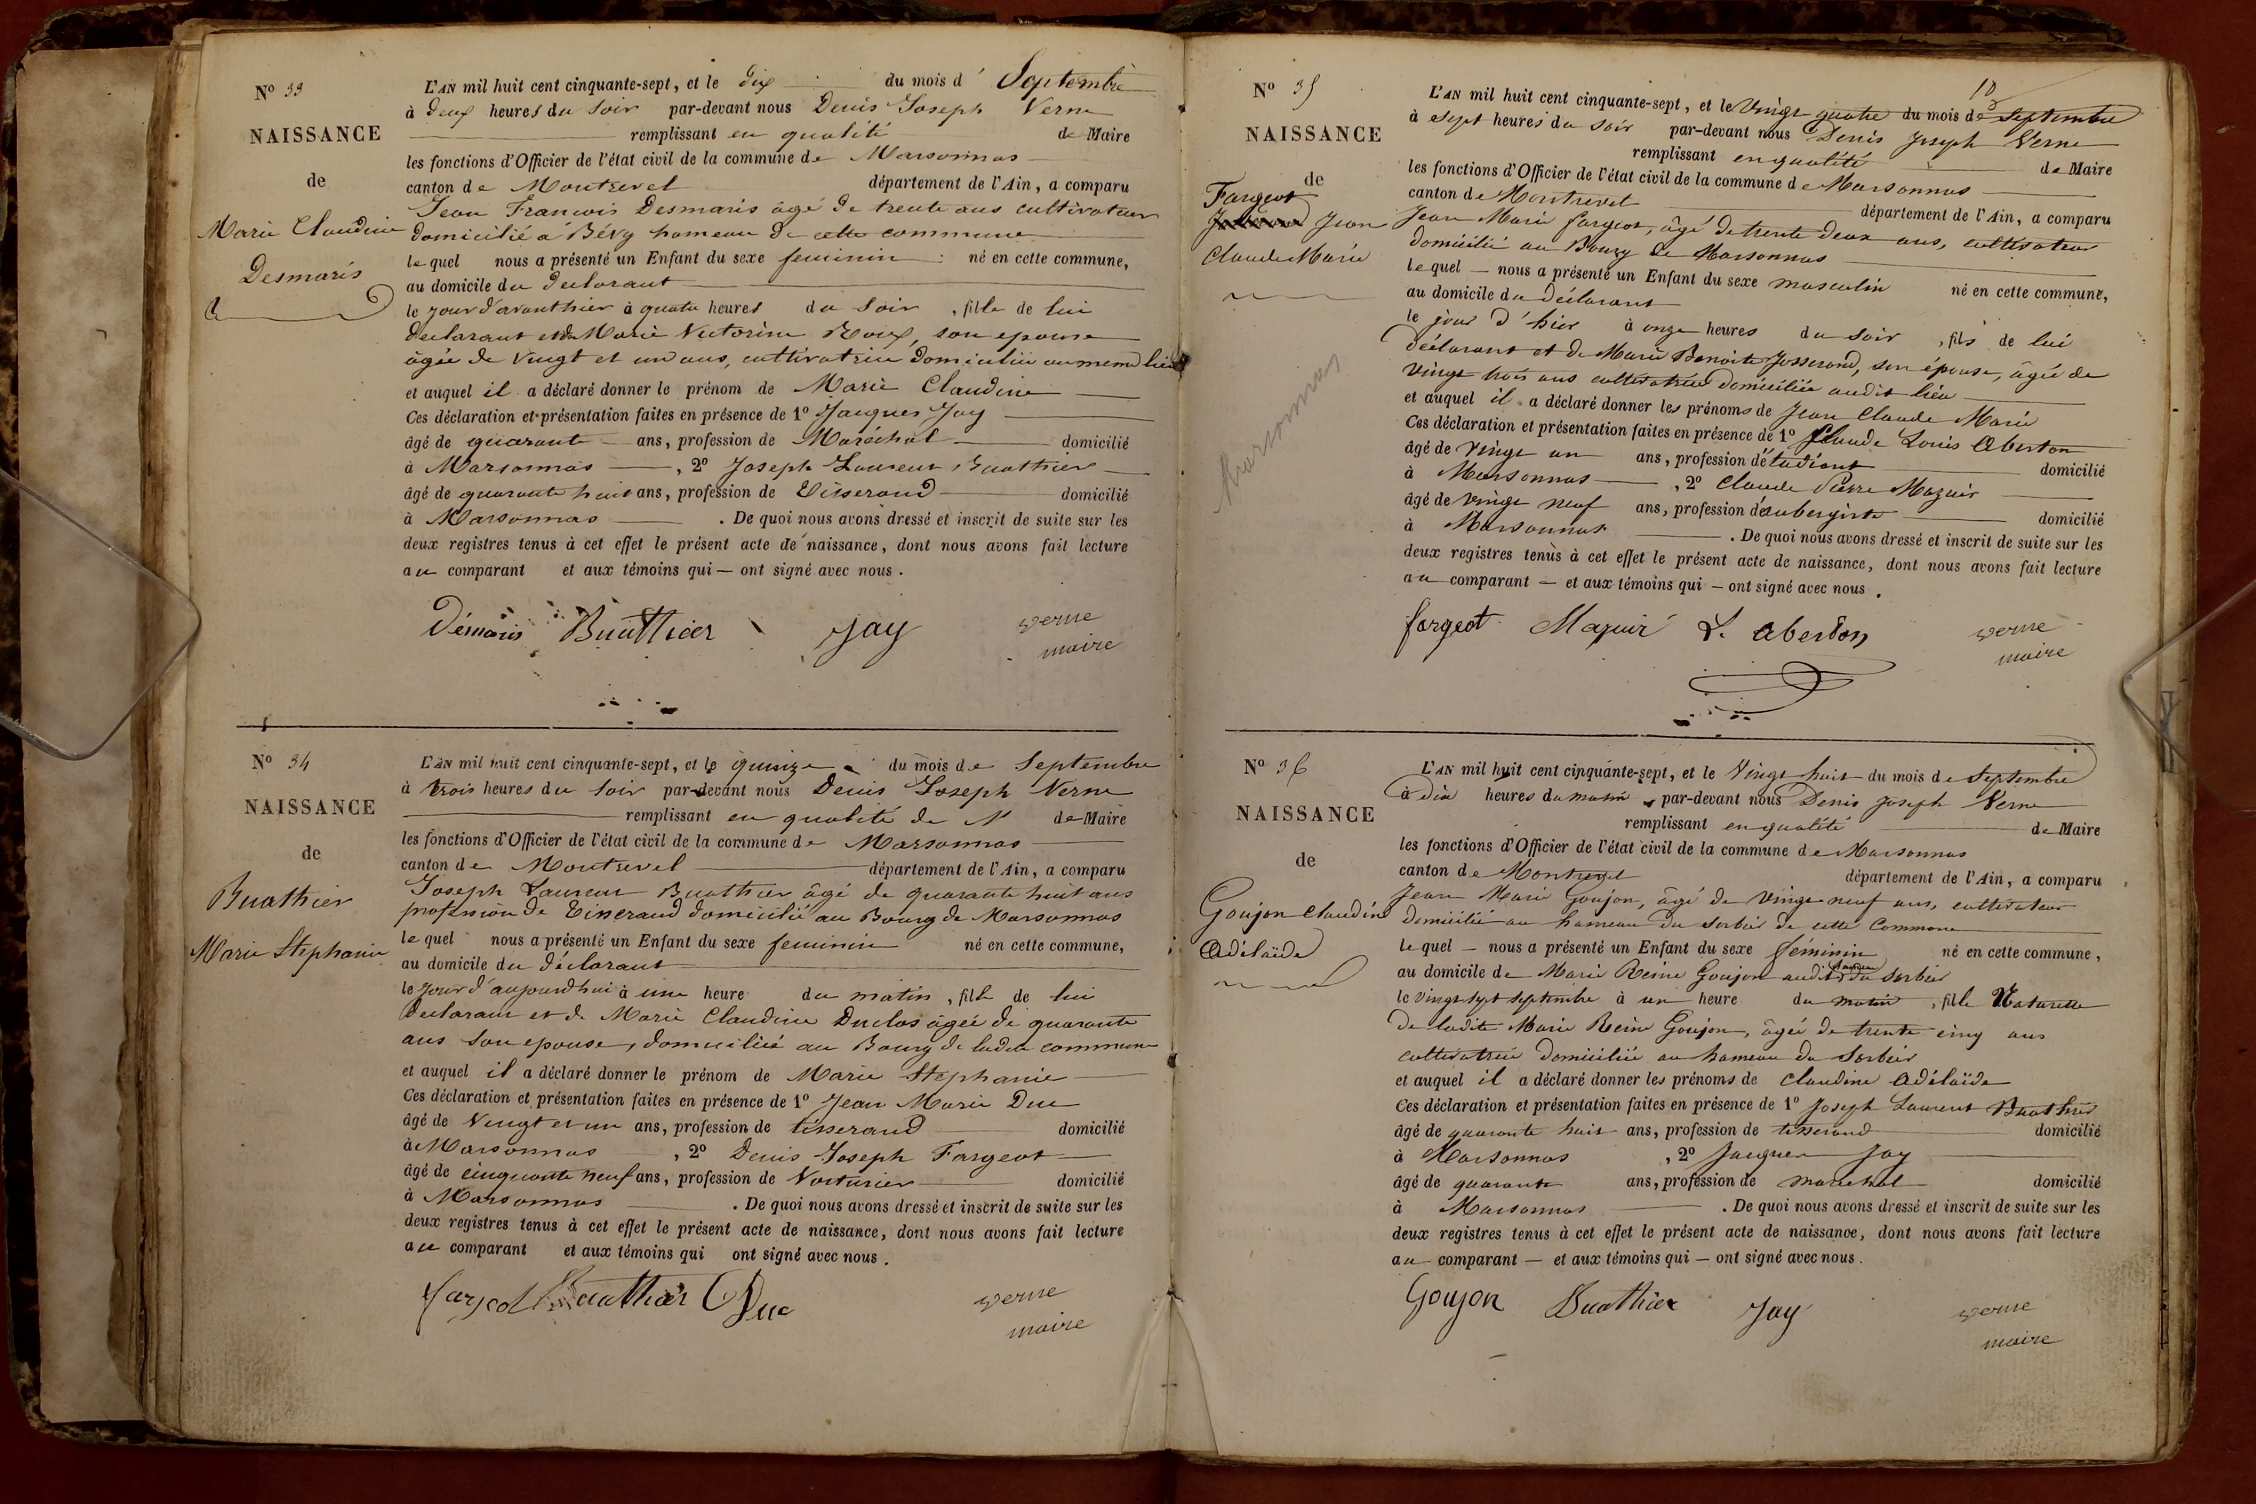 N° 33
NAISSANCE
de
Marie Claudine
Desmaris
L'AN mil huit cent cinquante-sept, et le dix du mois d' Septembre
à deux heures du soir par-devant nous Denis Joseph Verne
remplissant en qualité de Maire
les fonctions d'Officier de l'état civil de la commune de Marsonnas
canton de Montrevel département de l'Ain, a comparu
Jean Francois Desmaris âgé de trente ans cultivateur
domicilié à Bévy hameau de cette commune
lequel nous a présenté un Enfant du sexe feminin né en cette commune,
au domicile du declarant
le jour d'avanthier à quatre heures du soir, fille de lui
declarant et de Marie Victorine Roux, son epouse
âgée de vingt et un ans, cultivatrice domiciliée au meme lieu
et auquel il a déclaré donner le prénom de Marie Claudine
Ces déclaration et présentation faites en présence de 1° Jacques Jay
âgé de quarante ans, profession de Maréchal domicilié
à Marsonnas, 2° Joseph Laurent Buathier
âgé de quarante huit ans, profession de Tisserand domicilié
à Marsonnas. De quoi nous avons dressé et inscrit de suite sur les
deux registres tenus à cet effet le présent acte de naissance, dont nous avons fait lecture
au comparant et aux témoins qui — ont signé avec nous.
Démaris Buathier Jay verne
maire
N° 34
NAISSANCE
de
Buathier
Marie Stephanie
L'AN mil huit cent cinquante-sept, et le quinze du mois de Septembre
à trois heures du soir par-devant nous Denis Joseph Verne
remplissant en qualité de M de Maire
les fonctions d'Officier de l'état civil de la commune de Marsonnas
canton de Montrevel département de l'Ain, a comparu
Joseph Laurent Buathier âgé de quarante huit ans
profession de Tisserand domicilié au Bourg de Marsonnas
lequel nous a présenté un Enfant du sexe feminin né en cette commune,
au domicile du déclarant
le jour d'aujourdhui à une heure du matin, fille de lui
declarant et de Marie Claudine Duclos âgée de quarante
ans son epouse, domiciliée au Bourg de ladite commune
et auquel il a déclaré donner le prénom de Marie Stephanie
Ces déclaration et présentation faites en présence de 1° Jean Marie Duc
âgé de Vingt et un ans, profession de tisserand domicilié
à Marsonnas, 2° Denis Joseph Fargeot
âgé de cinquante neuf ans, profession de Voiturier domicilié
à Marsonnas. De quoi nous avons dressé et inscrit de suite sur les
deux registres tenus à cet effet le présent acte de naissance, dont nous avons fait lecture
au comparant et aux témoins qui ont signé avec nous.
fargeot Buathier Duc verne
maire
10
N° 35
NAISSANCE
de
Fargeot
Jean
Claude Marie
Marsonnas
L'AN mil huit cent cinquante-sept, et le Vingt quatre du mois de Septembre
à sept heures du soir par-devant nous Denis Joseph Verne
remplissant en qualité de Maire
les fonctions d'Officier de l'état civil de la commune de Marsonnas
canton de Montrevel département de l'Ain, a comparu
Jean Marie fargeot, âgé de trente deux ans, cultivateur
domicilié au Bourg de Marsonnas
lequel — nous a présenté un Enfant du sexe masculin né en cette commune,
au domicile du déclarant
le jour d'hier à onze heures du soir, fils de lui
déclarant et de Marie Benoite Josserand, son épouse, âgée de
Vingt trois ans cultivatrice domiciliée audit lieu
et auquel il a déclaré donner les prénoms de Jean Claude Marie
Ces déclaration et présentation faites en présence de 1° Claude Louis Aberton
âgé de vingt un ans, profession d'étudiant domicilié
à Marsonnas, 2° Claude Pierre Mazuir
âgé de vingt neuf ans, profession d'aubergiste domicilié
à Marsonnas. De quoi nous avons dressé et inscrit de suite sur les
deux registres tenus à cet effet le présent acte de naissance, dont nous avons fait lecture
au comparant — et aux témoins qui — ont signé avec nous.
fargeot Mazuir L. aberton verne
maire
N° 36
NAISSANCE
de
Goujon Claudine
Adélaïde
L'AN mil huit cent cinquante-sept, et le Vingt huit du mois de Septembre
à dix heures du matin par-devant nous Denis Joseph Verne
remplissant en qualité de Maire
les fonctions d'Officier de l'état civil de la commune de Marsonnas
canton de Montrevel département de l'Ain, a comparu
Jean Marie Goujon, âgé de vingt neuf ans, cultivateur
domicilié au hameau du Sorbier de cette Commune
lequel — nous a présenté un Enfant du sexe féminin né en cette commune,
au domicile de Marie Reine Goujon audit hameau du Sorbier
le vingt sept septembre à un heure du matin, fille Naturelle
de ladite Marie Reine Goujon, âgée de trente cinq ans
cultivatrice domiciliée au hameau du Sorbier
et auquel il a déclaré donner les prénoms de Claudine Adélaïde
Ces déclaration et présentation faites en présence de 1° Joseph Laurent Buathier
âgé de quarante huit ans, profession de tisserand domicilié
à Marsonnas, 2° Jacques Jay
âgé de quarante ans, profession de marechal domicilié
à Marsonnas. De quoi nous avons dressé et inscrit de suite sur les
deux registres tenus à cet effet le présent acte de naissance, dont nous avons fait lecture
au comparant — et aux témoins qui — ont signé avec nous.
Goujon Buathier Jay verne
maire